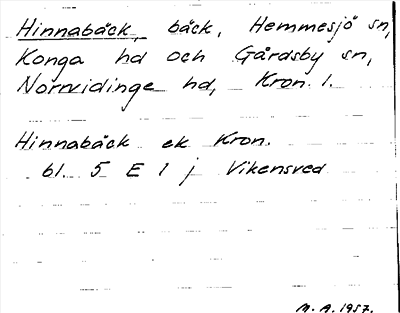 Hinnabäck, bäck, Hemmesjö sn,
Konga hd och Gårdsby sn,
Norrvidinge hd, Kron. l.
Hinnabäck ek Kron.
bl. 5 E 1 j Vikensved
M. A. 1957.